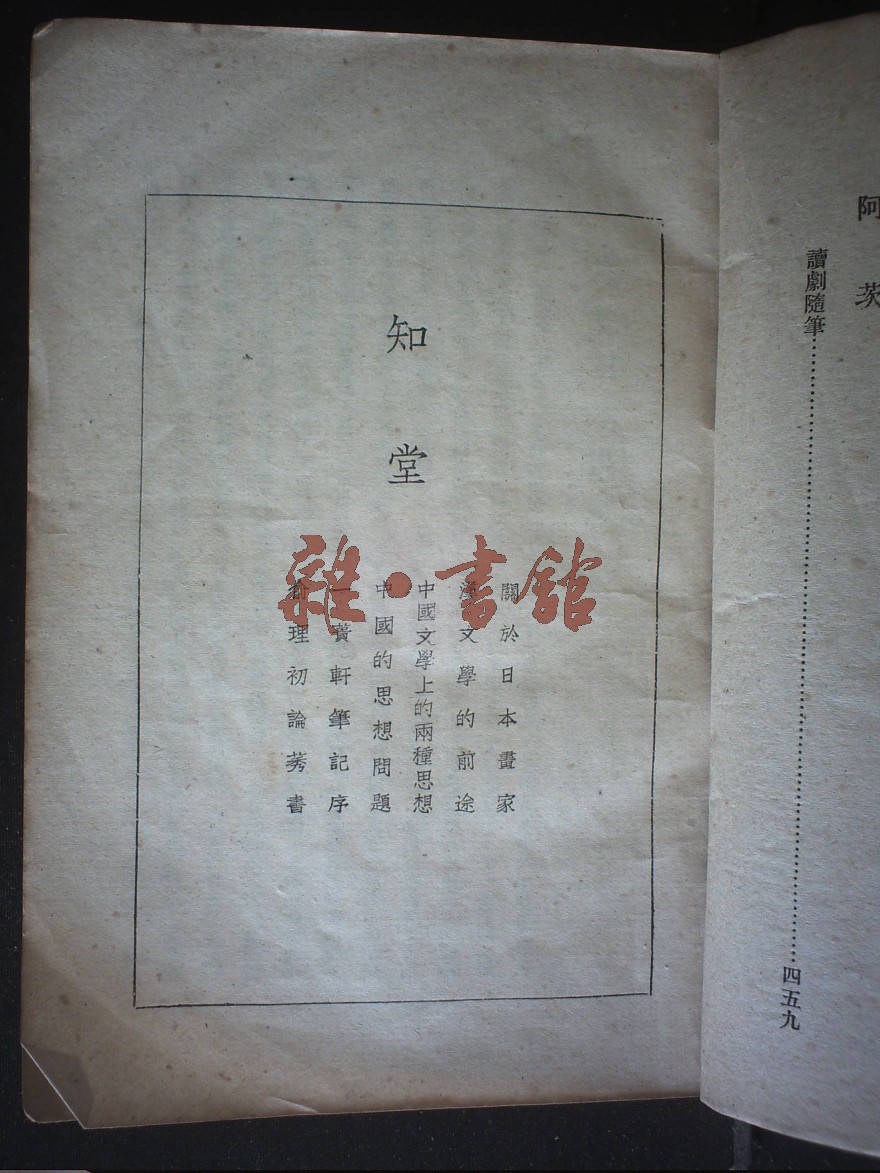 阿茨
讀劇隨筆……………………………四五九
知堂
關於日本畫家
漢文學的前途
中國文學上的兩種思想
中國的思想問題
一蕢軒筆記序
俞理初論莠書
雜·書館